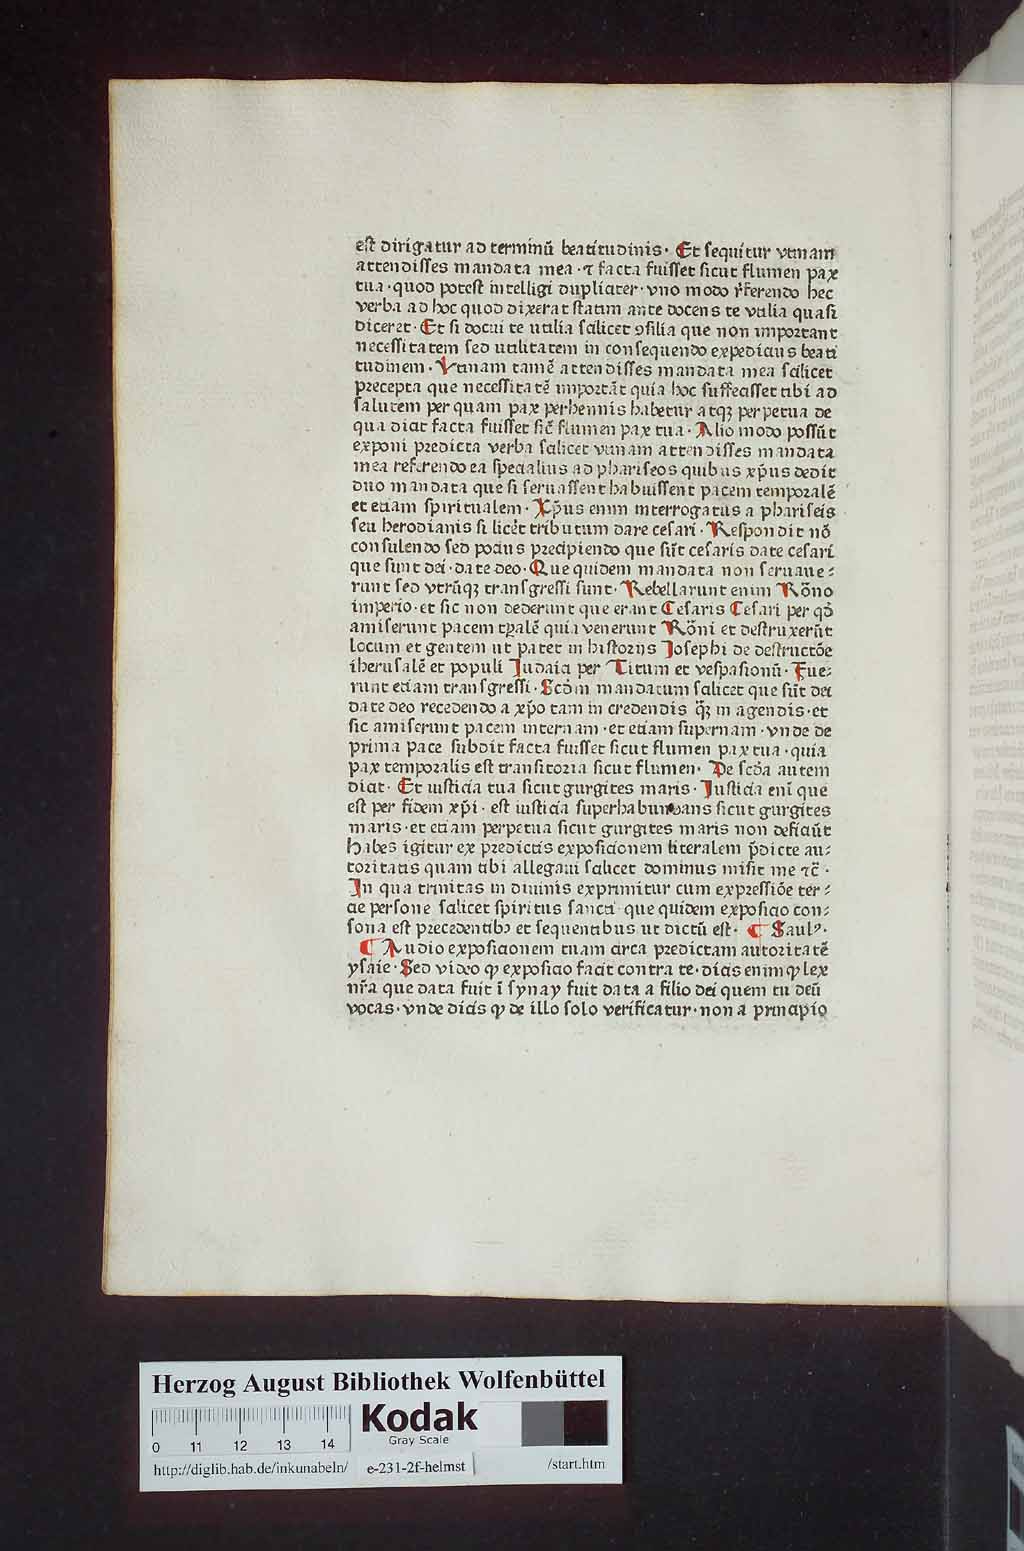 est dirigatur ad terminū beatitudinis · Et sequitur vtinam
attendisses mandata mea · ⁊ facta fuisset sicut flumen pax
tua · quod potest intelligi dupliciter · vno modo r̄ferendo hec
verba ad hoc quod dixerat statim ante docens te vtilia quasi
diceret · Et si docui te utilia scilicet ꝯsilia que non important
necessitatem sed utilitatem in consequendo expedicius beati
tudinem · Vtinam tamē attendisses mandata mea scilicet
precepta que necessitatē importāt quia hoc suffecisset tibi ad
salutem per quam pax perhennis habetur atqꝫ perpetua de
qua dicit facta fuisset sic̄ flumen pax tua · Alio modo possūt
exponi predicta verba scilicet vtinam attendisses mandata
mea referendo ea specialius ad phariseos quibus xp̄us dedit
duo mandata que si seruassent habuissent pacem temporalē
et etiam spiritualem · Xp̄us enim interrogatus a phariseis
seu herodianis si licet tributum dare cesari · Respondit nō
consulendo sed pocius precipiendo que sūt cesaris date cesari
que sunt dei · date deo · Que quidem mandata non seruaue⸗
runt sed vtrūqꝫ transgressi sunt · Rebellarunt enim Rōno
imperio · et sic non dederunt que erant Cesaris Cesari per qđ
amiserunt pacem tp̄alē quia venerunt Rōni et destruxerūt
locum et gentem ut patet in historijs Josephi de destructōe
iherusalē et populi Judaici per Titum et vespasionū · Fue⸗
runt etiam transgressi · Scđm mandatum scilicet que sūt dei
date deo recedendo a xp̄o tam in credendis q̄ꝫ in agendis · et
sic amiserunt pacem internam · et etiam supernam · vnde de
prima pace subdit facta fuisset sicut flumen pax tua · quia
pax temporalis est transitoria sicut flumen · De scđa autem
dicit · Et iusticia tua sicut gurgites maris · Justicia enī que
est per fidem xp̄i · est iusticia superhabundans sicut gurgites
maris · et etiam perpetua sicut gurgites maris non deficiūt
Habes igitur ex predictis exposicionem literalem p̄dicte au⸗
toritatis quam tibi allegaui scilicet dominus misit me ⁊c̄ ·
In qua trinitas in diuinis exprimitur cum expressiōe ter⸗
cie persone scilicet spiritus sancti que quidem exposicio con⸗
sona est precedentibꝫ et sequentibus ut dictū est · ¶ Saulꝰ ·
¶ Audio exposicionem tuam circa predictam autoritatē
ysaie · Sed video ꝙ exposicio facit contra te · dicis enim ꝙ lex
nr̄a que data fuit ī synay fuit data a filio dei quem tu deū
vocas · vnde dicis ꝙ de illo solo verificatur · non a principio
Herzog August Bibliothek Wolfenbüttel
Kodak
Gray Scale
0 11 12 13 14
http://diglib.hab.de/inkunabeln/ e-231-2f-helmst /start.htm